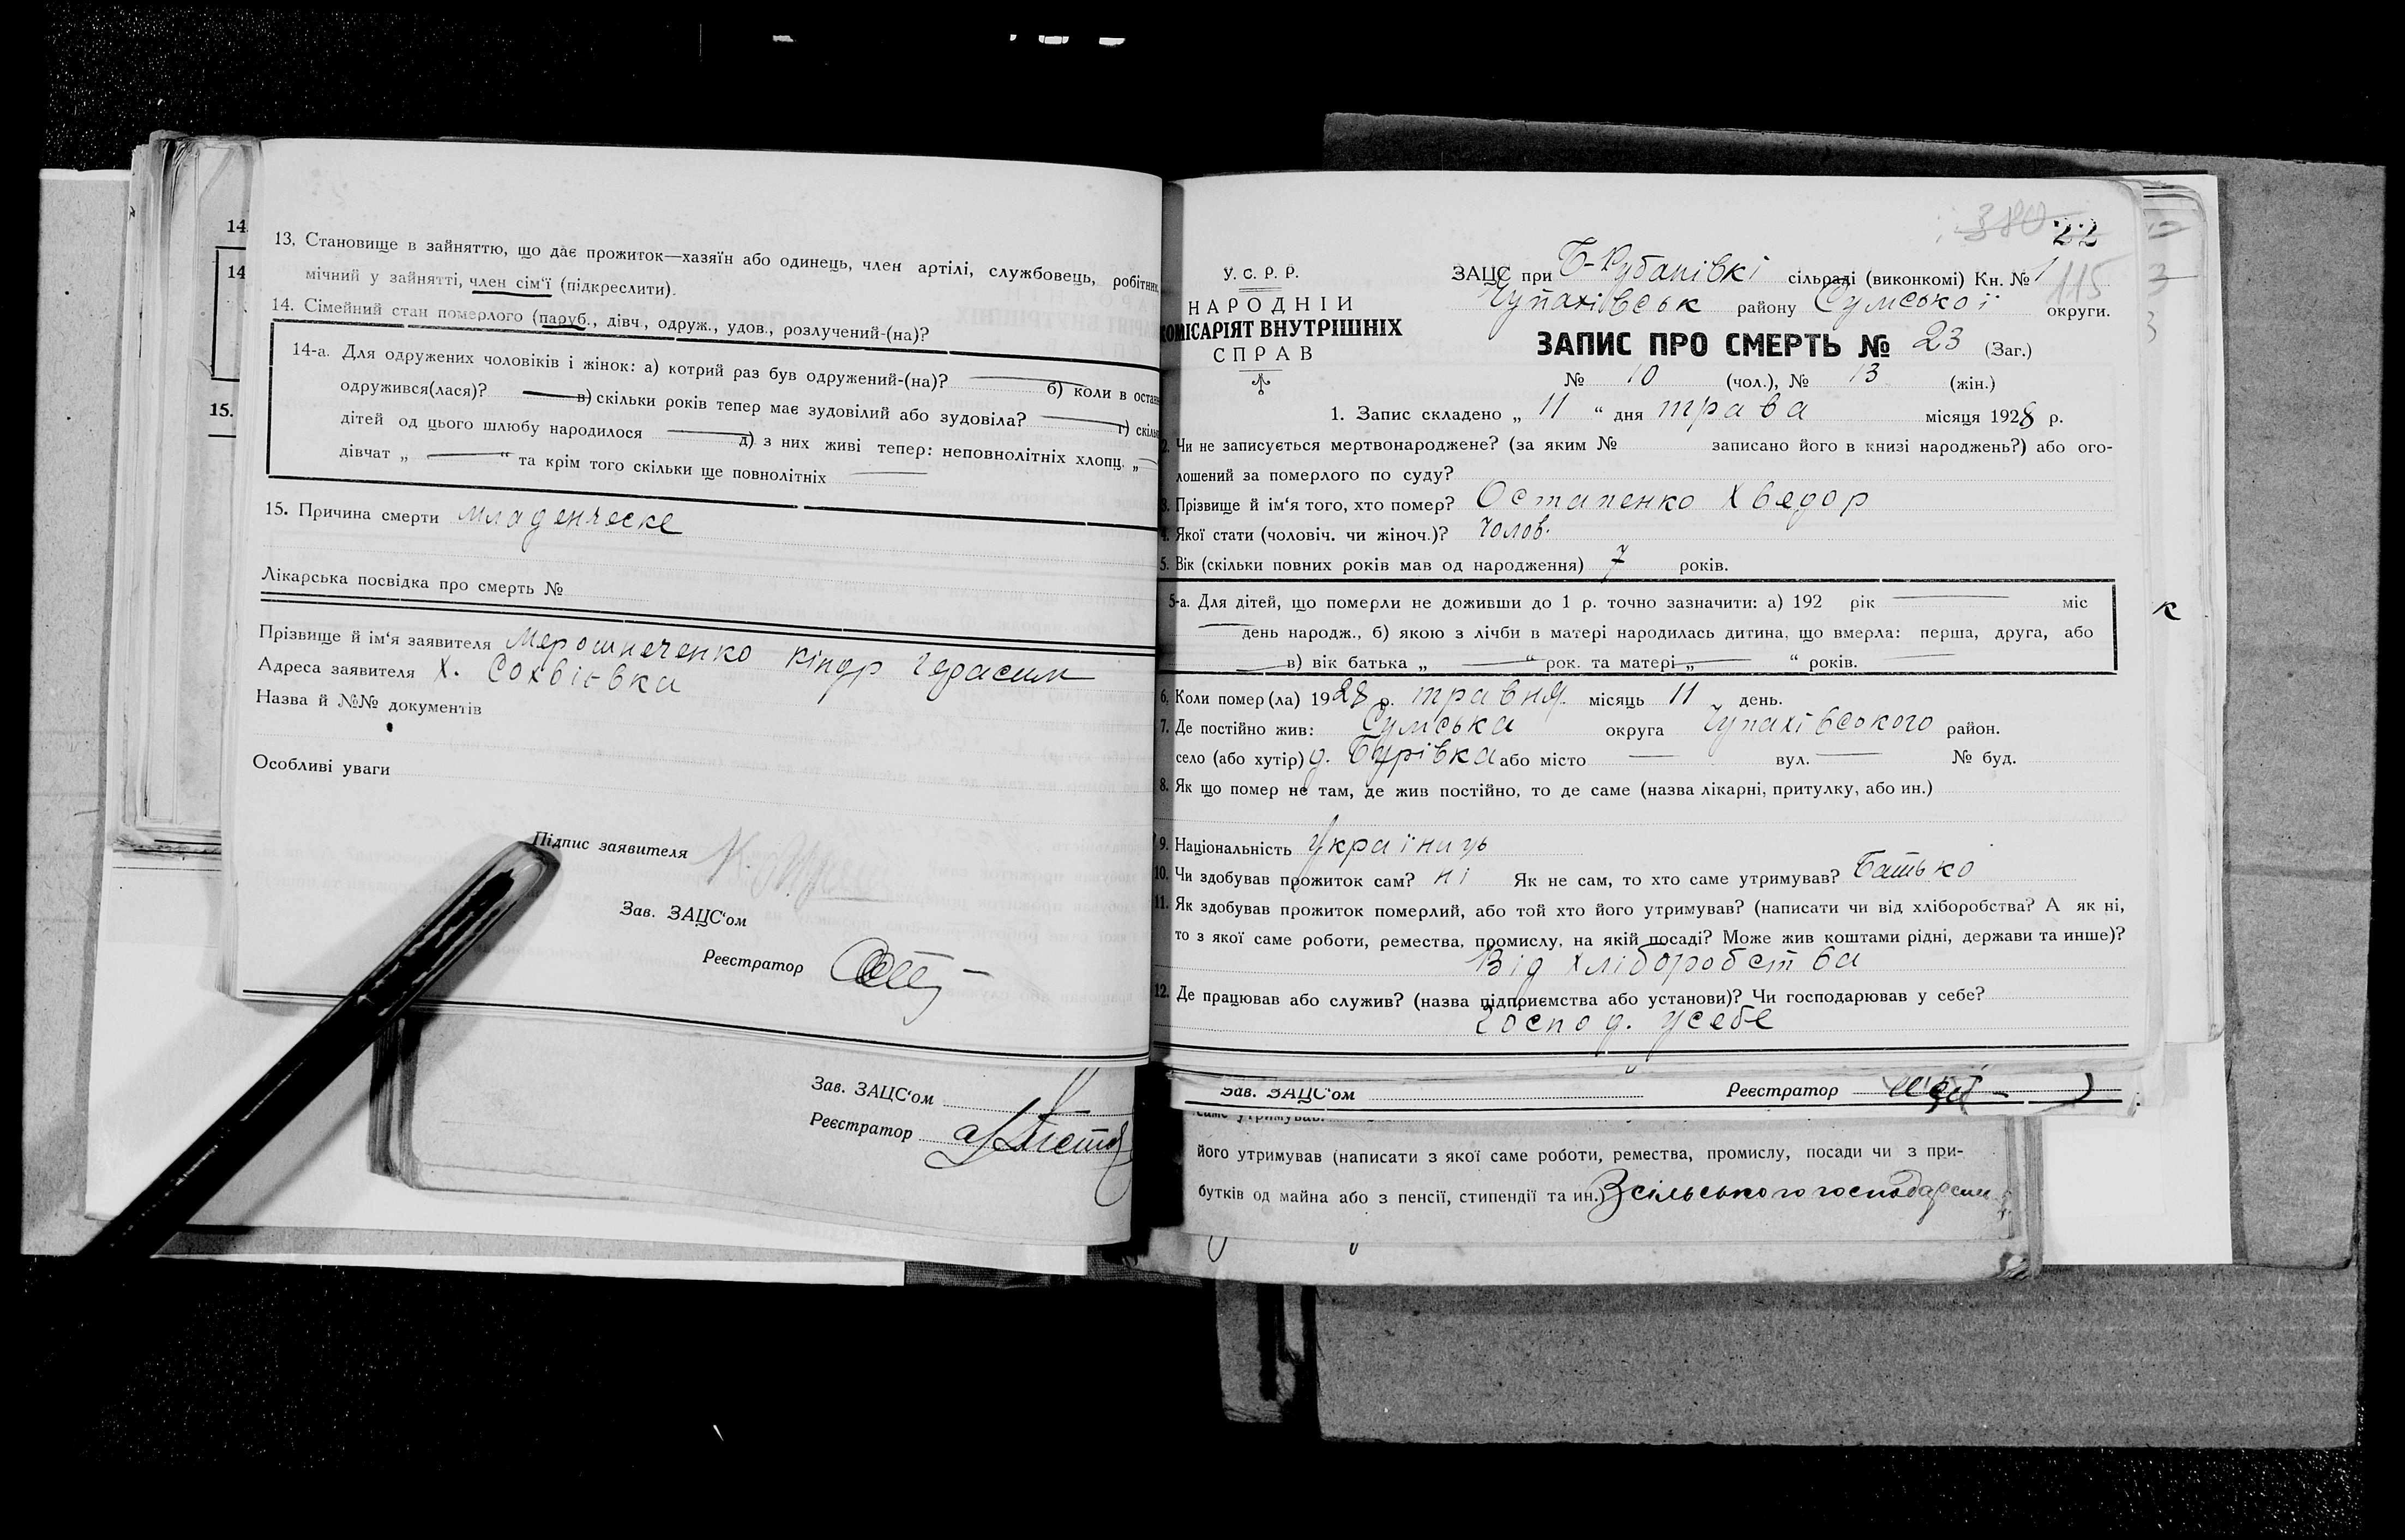 14
14
15.
13. Становище в зайняттю, що дає прожиток—хазяїн або одинець, член артілі, службовець, робітник,
мічний у зайнятті, член сім'ї (підкреслити).
14. Сімейний стан померлого (паруб., дівч., одруж., удов., розлучений-(на)?
14-а. Для одружених чоловіків і жінок: а) котрий раз був одружений-(на)? б) коли в остан
одружився(лася)? в) скільки років тепер має зудовілий або зудовіла? г) скіль
дітей од цього шлюбу народилося д) з них живі тепер: неповнолітніх хлопц. „
дівчат „ “ та крім того скільки ще повнолітніх
15. Причина смерти младенческе
Лікарська посвідка про смерть №
Прізвище й ім'я заявителя Мерошнеченко Кіндр Герасим
Адреса заявителя х. Сохвіївка
Назва й №№ документів
Особливі уваги
Підпис заявителя
Зав. ЗАЦС'ом
Реєстратор
Зав. ЗАЦС'ом
Реєстратор
380 22
У. С. Р. Р.
НАРОДНІЙ
КОМІСАРІЯТ ВНУТРІШНІХ
СПРАВ
ЗАЦС при Б-Рубанівкі сільраді (виконкомі) Кн. № 1
115
Чупахівськ району Сумської округи.
ЗАПИС ПРО СМЕРТЬ № 23 (Заг.)
№ 10 (чол.), № 13 (жін.)
1. Запис складено „ 11 “ дня трава місяця 1928 р.
2. Чи не записується мертвонароджене? (за яким № записано його в книзі народжень?) або ого-
лошений за померлого по суду?
3. Прізвище й ім'я того, хто помер? Остапенко Хведор
4. Якої стати (чоловіч. чи жіноч.)? Чолов.
5. Вік (скільки повних років мав од народження) 7 років.
5-а. Для дітей, що померли не доживши до 1 р. точно зазначити: а) 192 рік міс
день народж., б) якою з лічби в матері народилась дитина, що вмерла: перша, друга, або
в) вік батька „ “ рок. та матері „ “ років.
6. Коли помер(ла) 1928 р. травня місяць 11 день.
7. Де постійно жив: Сумська округа Чупахівського район.
село (або хутір) д. Бурівка або місто вул. № буд.
8. Як що помер не там, де жив постійно, то де саме (назва лікарні, притулку, або ин.)
9. Національність Україниць
10. Чи здобував прожиток сам? ні Як не сам, то хто саме утримував? Батько
11. Як здобував прожиток померлий, або той хто його утримував? (написати чи від хліборобства? А як ні,
то з якої саме роботи, ремества, промислу, на якій посаді? Може жив коштами рідні, держави та инше)?
Від хліборобства
12. Де працював або служив? (назва підприємства або установи)? Чи господарював у себе?
Господ. усебе
Зав. ЗАЦС'ом Реєстратор
саме утримував.
його утримував (написати з якої саме роботи, ремества, промислу, посади чи з при-
бутків од майна або з пенсії, стипендії та ин.) З сільського господарства
к